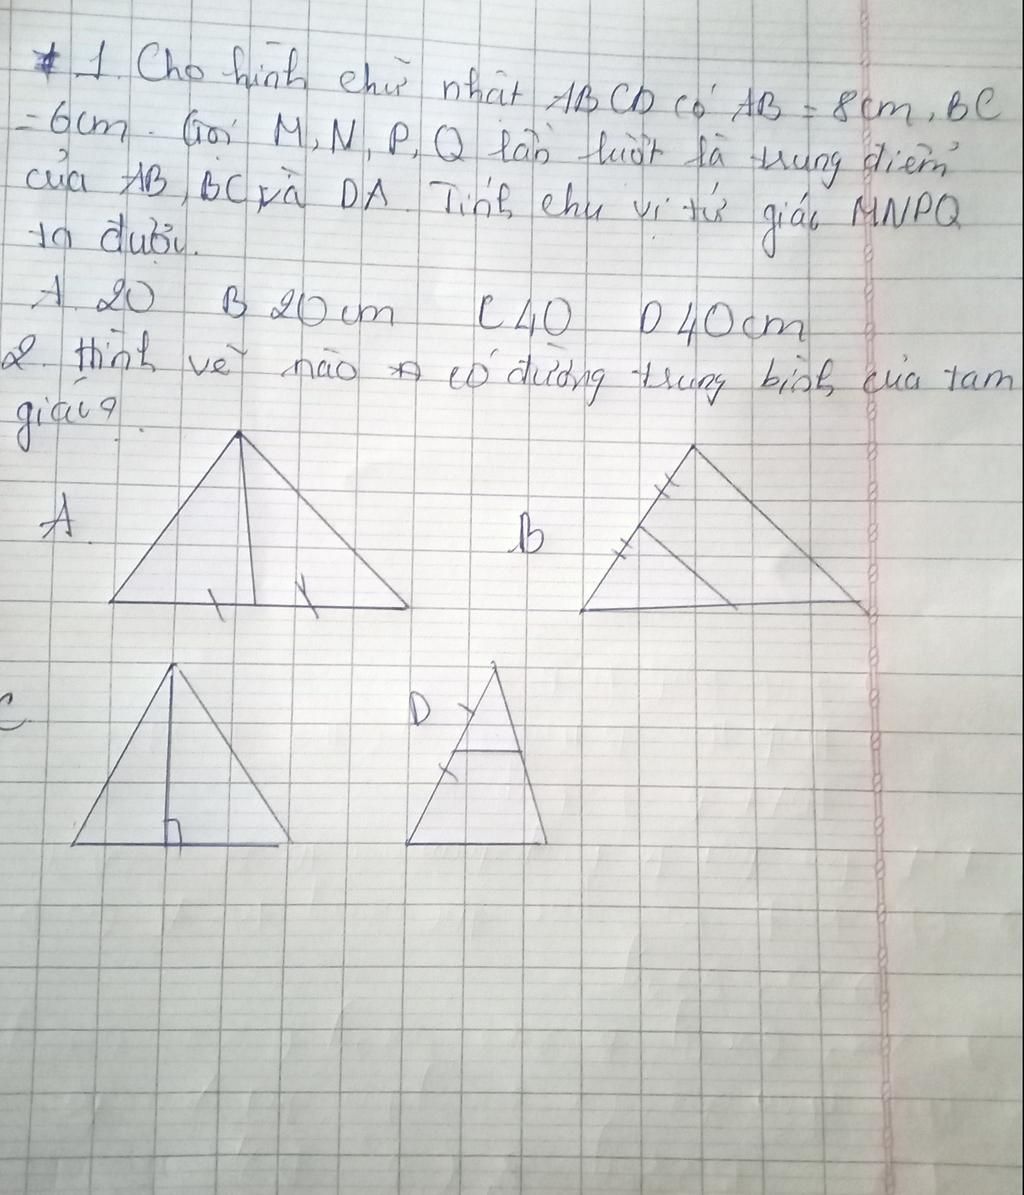 * 1. Cho hình chữ nhật ABCD có AB = 8cm, BC
= 6cm. Gọi M, N, P, Q lần lượt là trung điểm
của AB, BC và DA. Tính chu vi tứ giác MNPQ
ta được.
A. 20 B 20cm C 40 D 40cm
2. Hình vẽ nào có đường trung bình của tam
giác?
A. B
C D